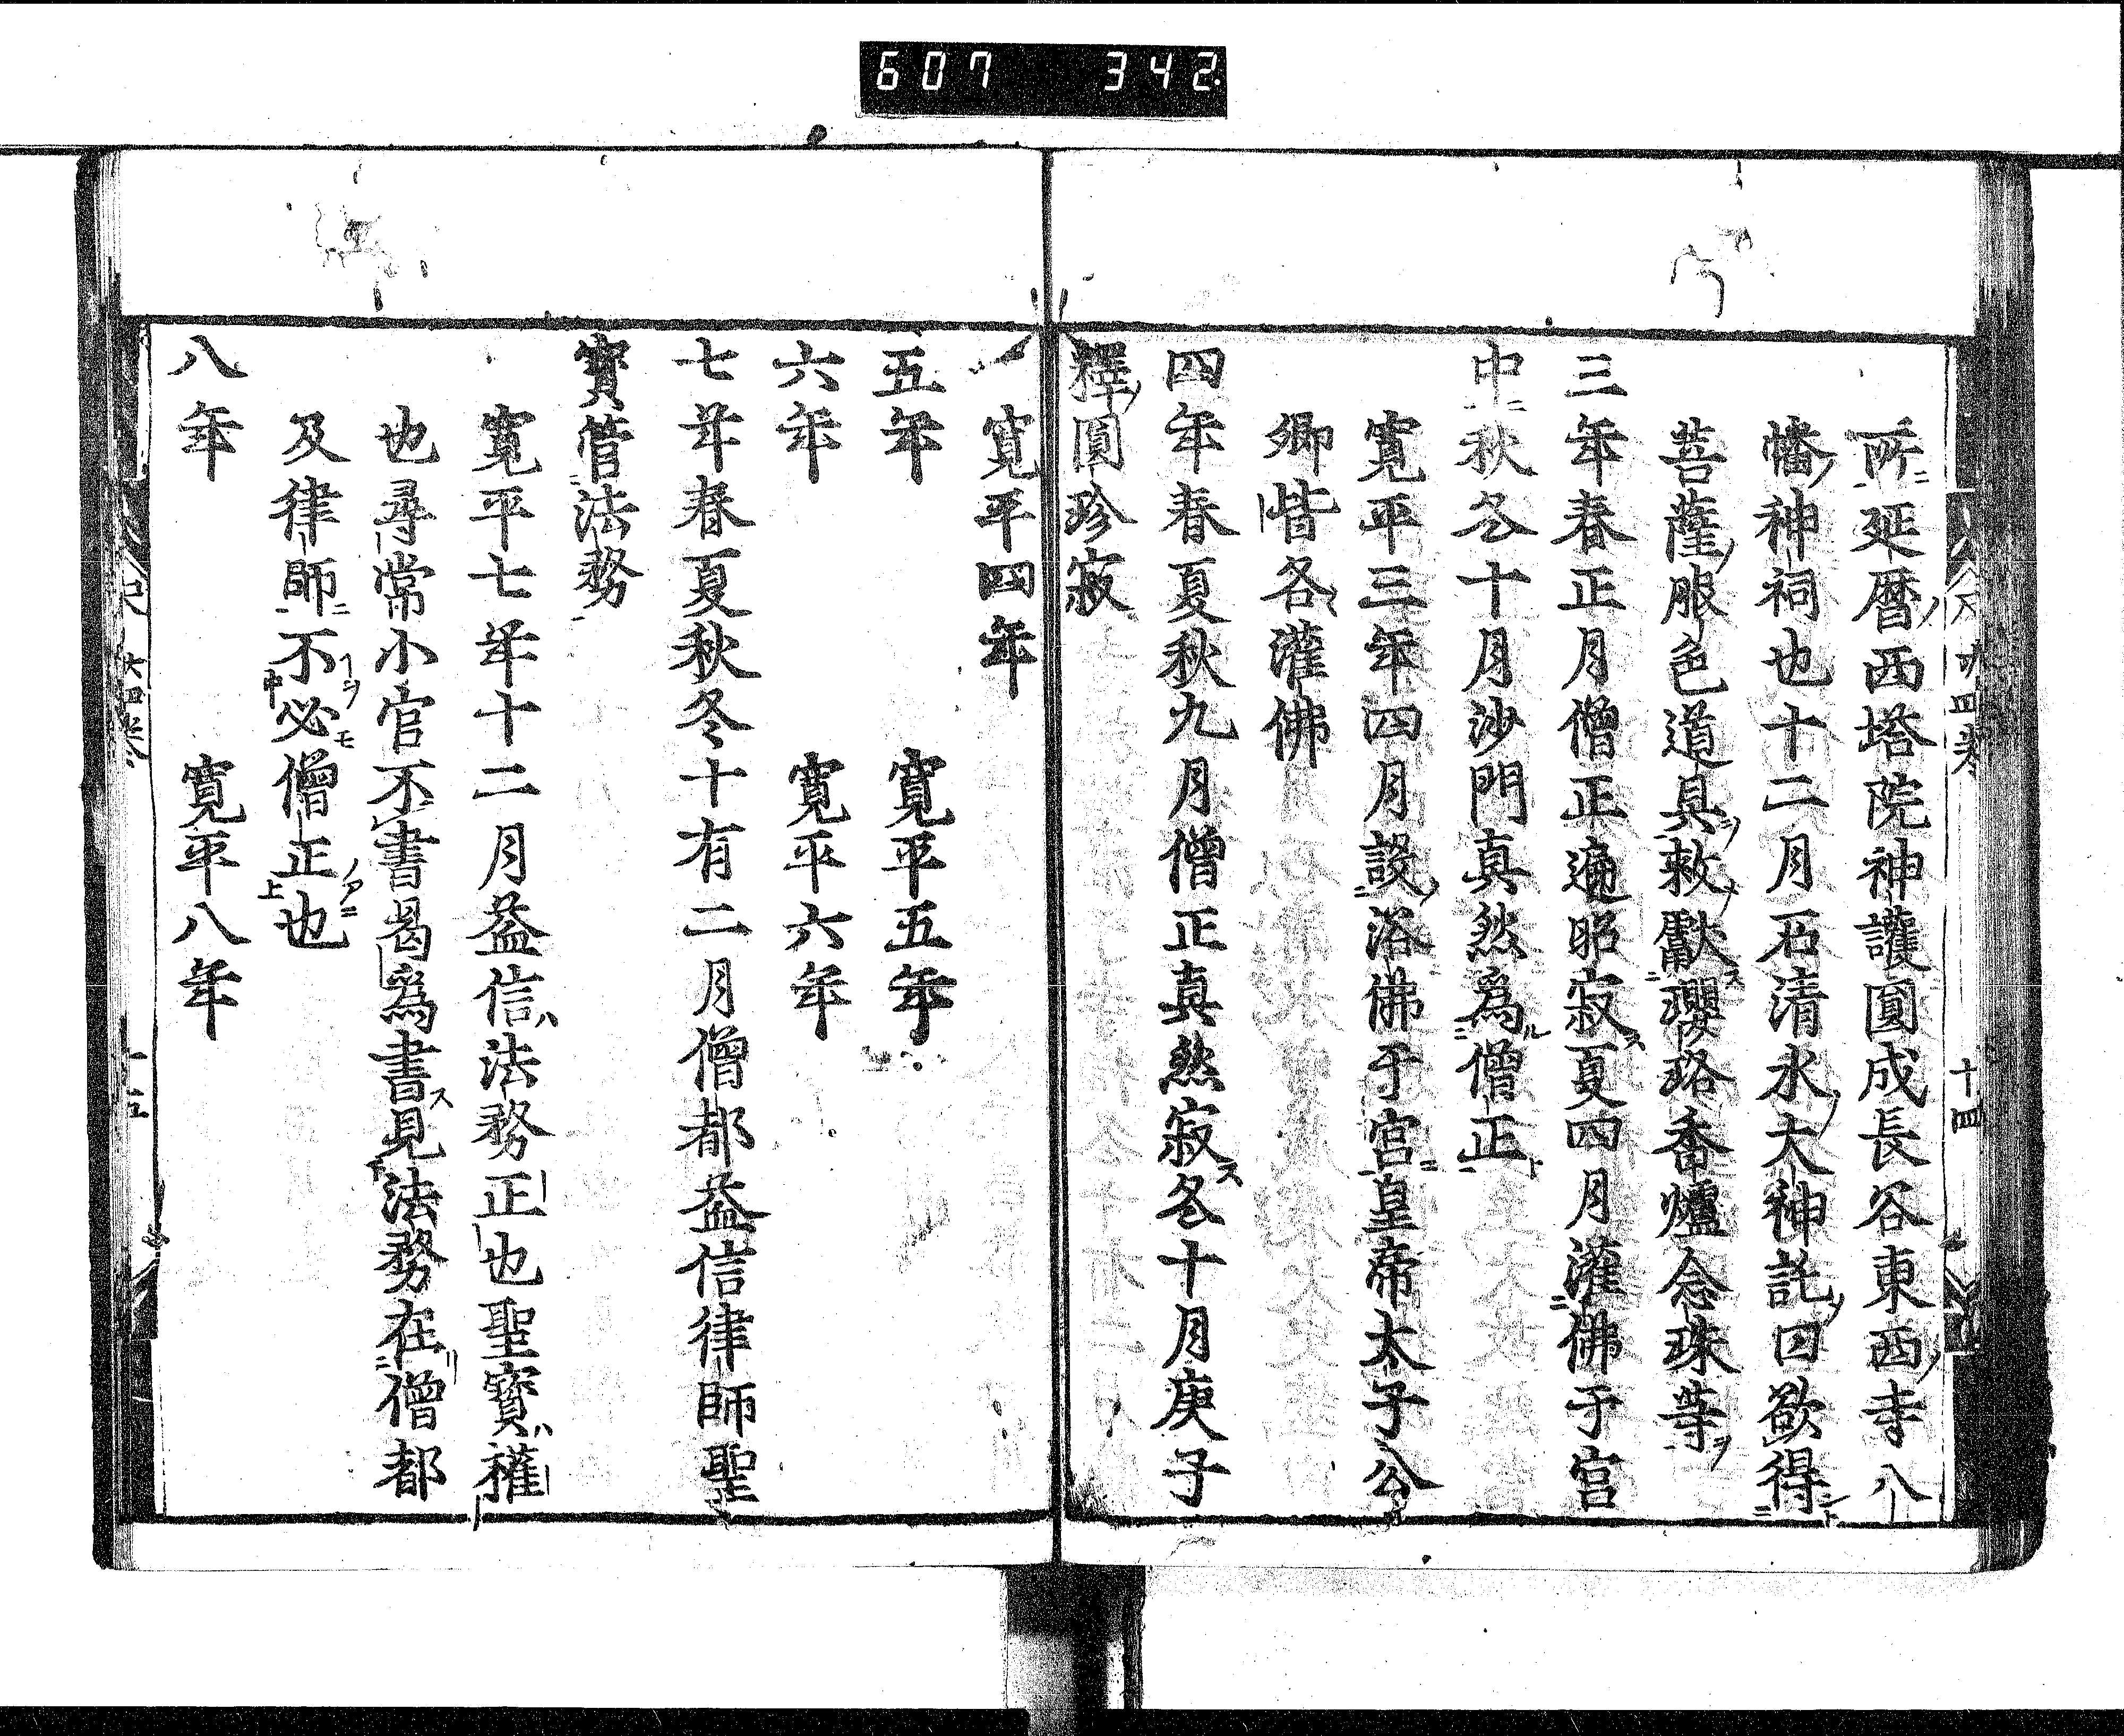 607 342
所延暦西塔院神護圓成長谷東西寺八
幡神祠也十二月石清水大神託曰欲得
菩薩服色道具敕獻瓔珞香爐念珠等
三年春正月僧正遍昭寂夏四月灌佛于宮
中秋冬十月沙門真然爲僧正
寛平三年四月設浴佛于宮皇帝太子公
卿皆各灌佛
四年春夏秋九月僧正真然寂冬十月庚子
釋圓珍寂
寛平四年
五年 寛平五年
六年 寛平六年
七年春夏秋冬十有二月僧都益信律師聖
寳管法務
寛平七年十二月益信法務正也聖寳權
也尋常小官不書曷爲書見法務在僧都
及律師不必僧正也
八年 寛平八年